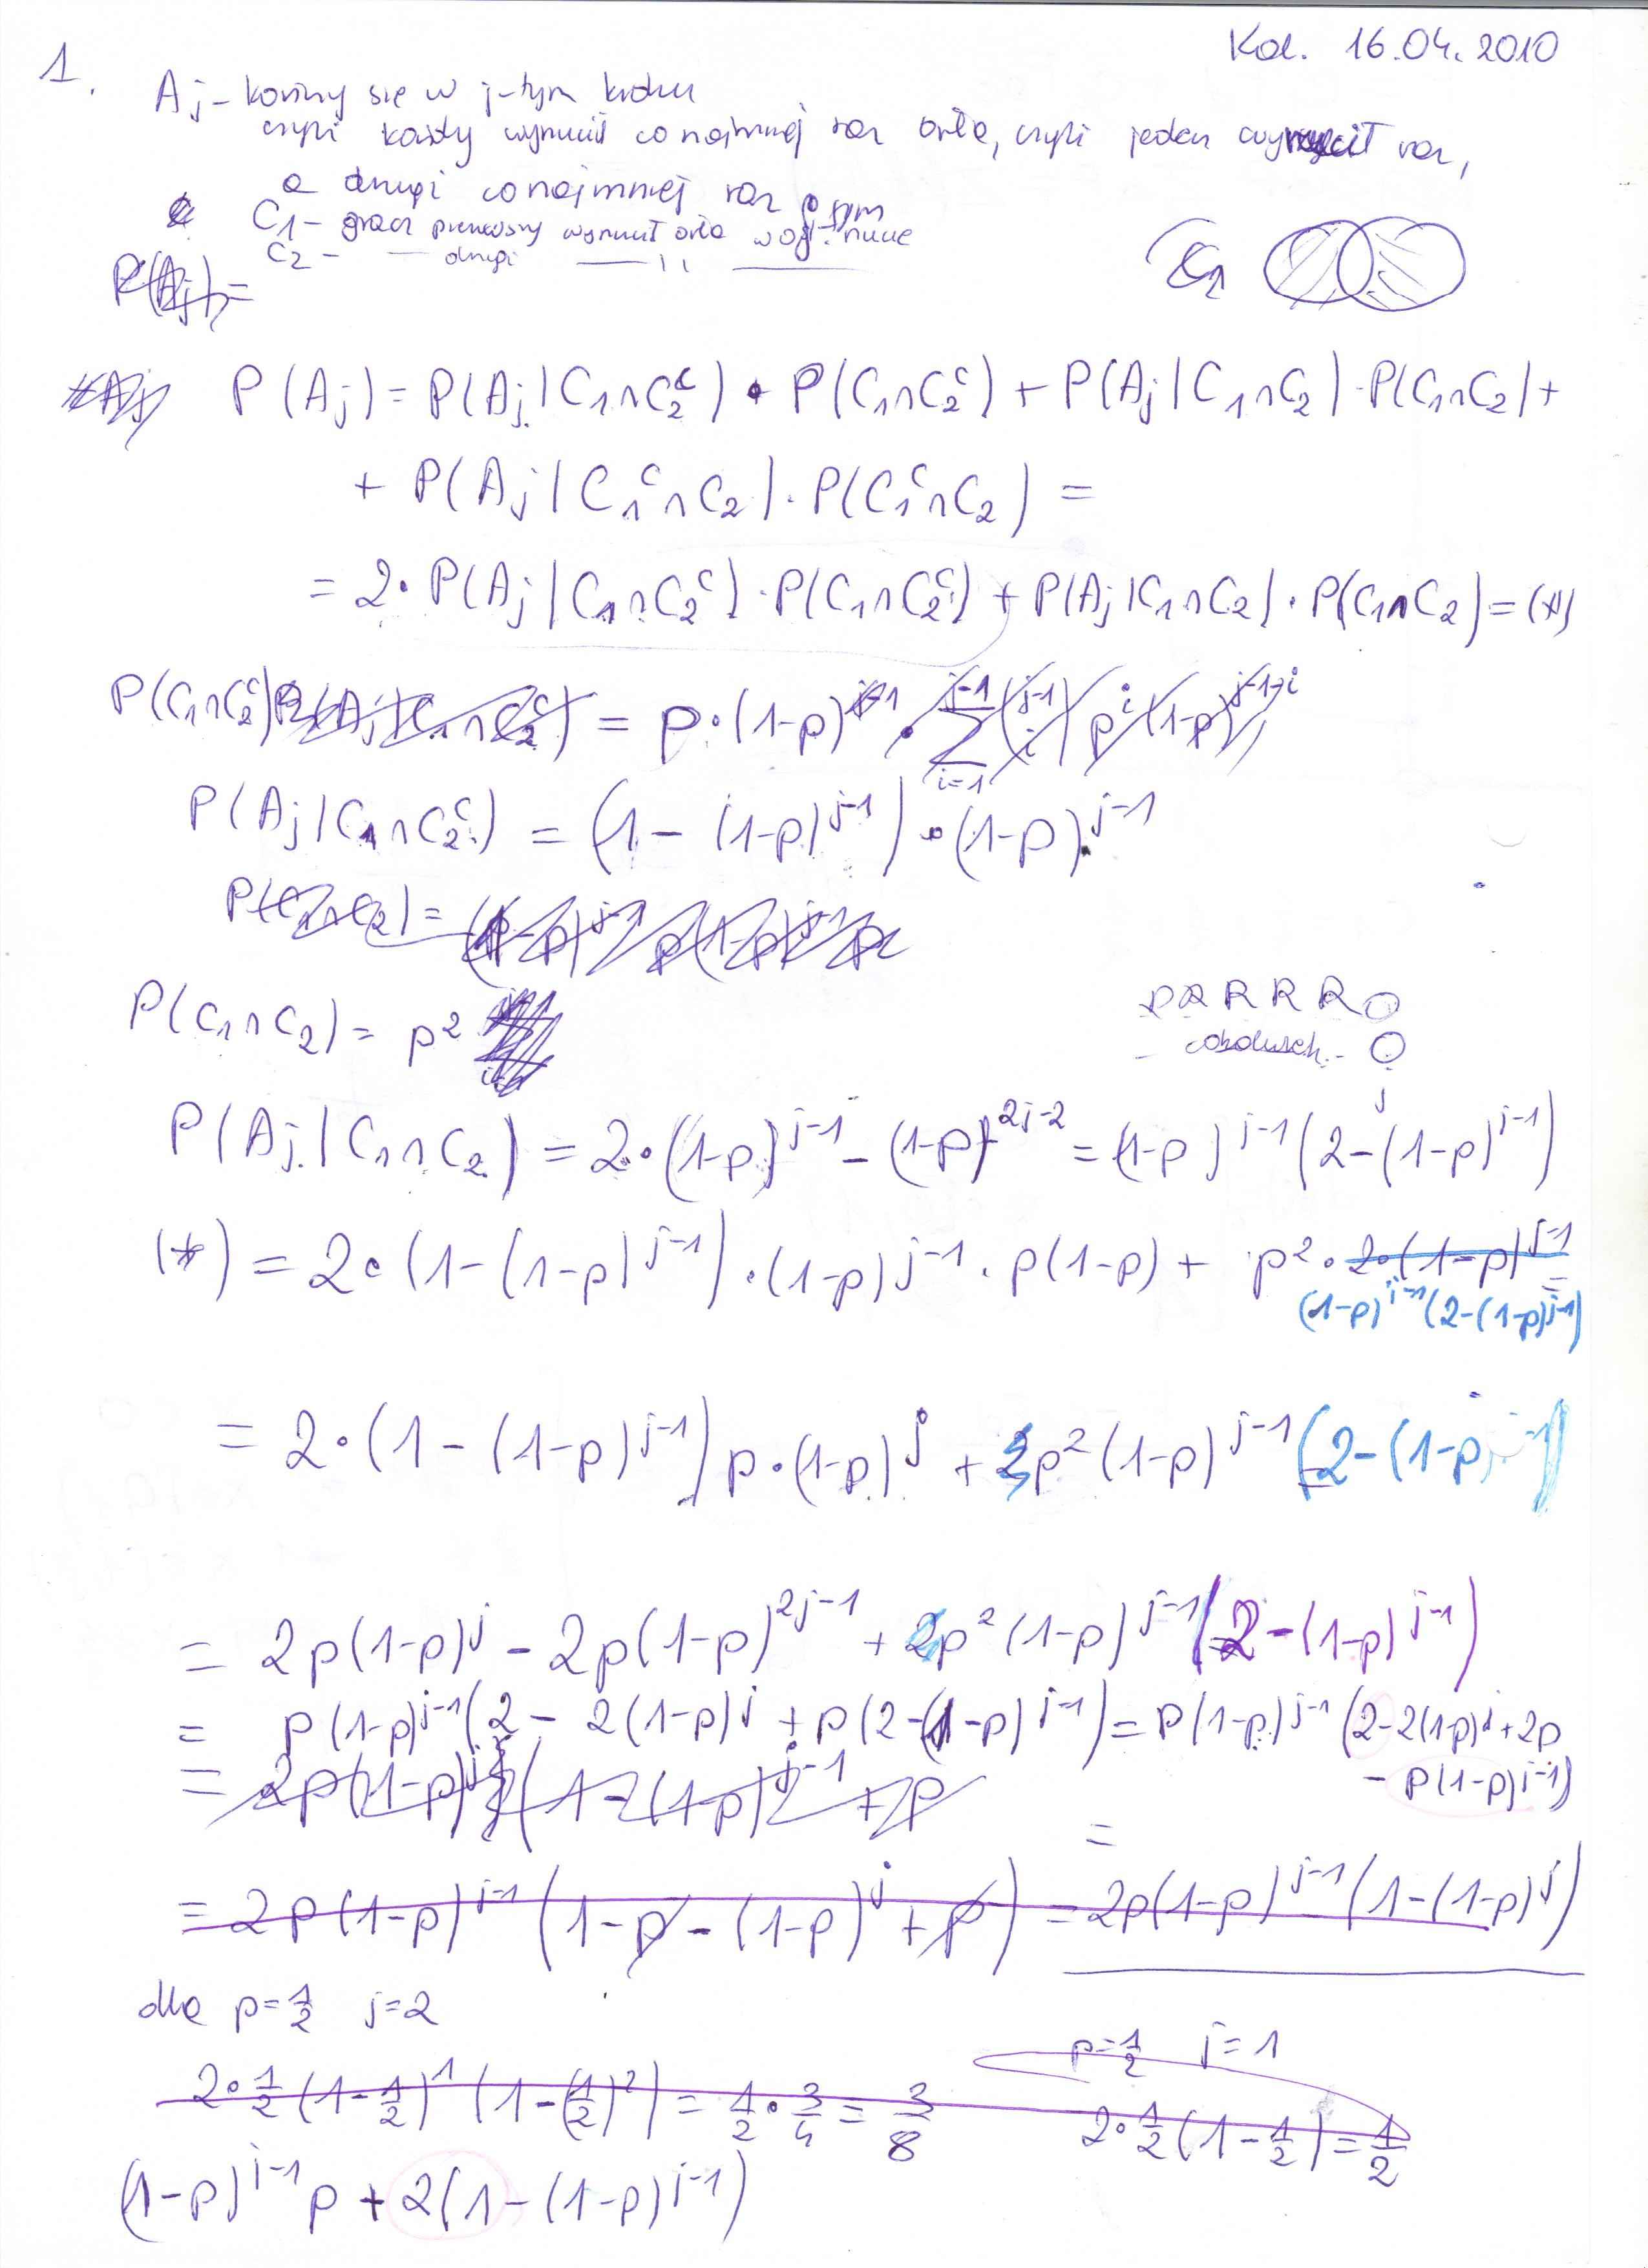 Kol. 16.04.2010
1.
Aj - kończy się w j-tym kroku
czyli każdy wyrzucił co najmniej raz orła, czyli jeden wyrzucił raz,
a drugi co najmniej raz
C1 - gracz pierwszy wyrzucił orła w rzucie
C2 - — drugi — 11 —
C1
P(Aj) =
P(Aj) = P(Aj|C1∩C2^c) · P(C1∩C2^c) + P(Aj|C1∩C2) · P(C1∩C2) +
+ P(Aj|C1^c∩C2) · P(C1^c∩C2) =
= 2 · P(Aj|C1∩C2^c) · P(C1∩C2^c) + P(Aj|C1∩C2) · P(C1∩C2) = (*)
P(C1∩C2^c) = p·(1-p)
P(Aj|C1∩C2^c) = (1 - (1-p)^{j-1}) · (1-p)^{j-1}
P(C1∩C2) =
P(C1∩C2) = p²
R R R R O
O
P(Aj|C1∩C2) = 2·(1-p)^{j-1} - (1-p)^{2j-2} = (1-p)^{j-1}(2-(1-p)^{j-1})
(*) = 2·(1-(1-p)^{j-1})·(1-p)^{j-1}·p(1-p) + p²·2·(1-p)^{j-1} =
(1-p)^{j-1}(2-(1-p)^{j-1})
= 2·(1-(1-p)^{j-1}) p·(1-p)^j + p²(1-p)^{j-1}(2-(1-p)^{j-1})
= 2p(1-p)^j - 2p(1-p)^{2j-1} + p²(1-p)^{j-1}(2-(1-p)^{j-1})
= p(1-p)^{j-1}(2 - 2(1-p)^j + p(2-(1-p)^{j-1}) = p(1-p)^{j-1}(2-2(1-p)^j+2p
- p(1-p)^{j-1})
= 2p(1-p)^j(1-(1-p)^{j-1}+p
=
= 2p(1-p)^{j-1}(1-p-(1-p)^j+p) = 2p(1-p)^{j-1}(1-(1-p)^j)
dla p=1/2 j=2
p=1/2 j=1
2·1/2(1-1/2)^1(1-(1/2)²) = 1/2·3/4 = 3/8
2·1/2(1-1/2) = 1/2
(1-p)^{j-1}p + 2(1-(1-p)^{j-1})